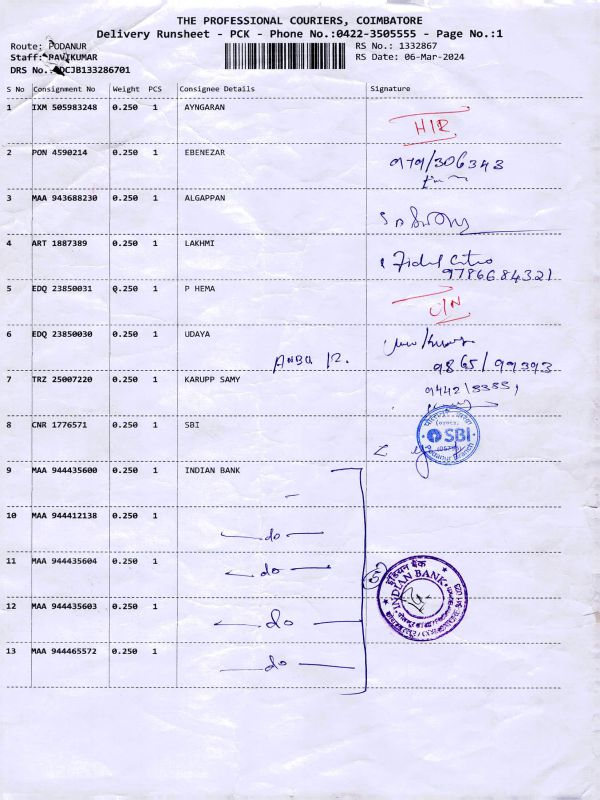 THE PROFESSIONAL COURIERS, COIMBATORE
Delivery Runsheet - PCK - Phone No.:0422-3505555 - Page No.:1
Route: PODANUR
RS No.: 1332867
Staff: PAVIKUMAR
RS Date: 06-Mar-2024
DRS No.: DCJB133286701
S No Consignment No Weight PCS Consignee Details Signature
1 IXM 505983248 0.250 1 AYNGARAN
H/R
2 PON 4590214 0.250 1 EBENEZAR
979/306343
3 MAA 943688230 0.250 1 ALGAPPAN
4 ART 1887389 0.250 1 LAKHMI
Fidel Citro
9786684321
5 EDQ 23850031 0.250 1 P HEMA
U/N
6 EDQ 23850030 0.250 1 UDAYA
ANBU R.
9865/99393
7 TRZ 25007220 0.250 1 KARUPP SAMY
8 CNR 1776571 0.250 1 SBI
SBI
Podanur Branch
9 MAA 944435600 0.250 1 INDIAN BANK
10 MAA 944412138 0.250 1
do
11 MAA 944435604 0.250 1
do
5
इंडियन बैंक
INDIAN BANK
12 MAA 944435603 0.250 1
do
13 MAA 944465572 0.250 1
do